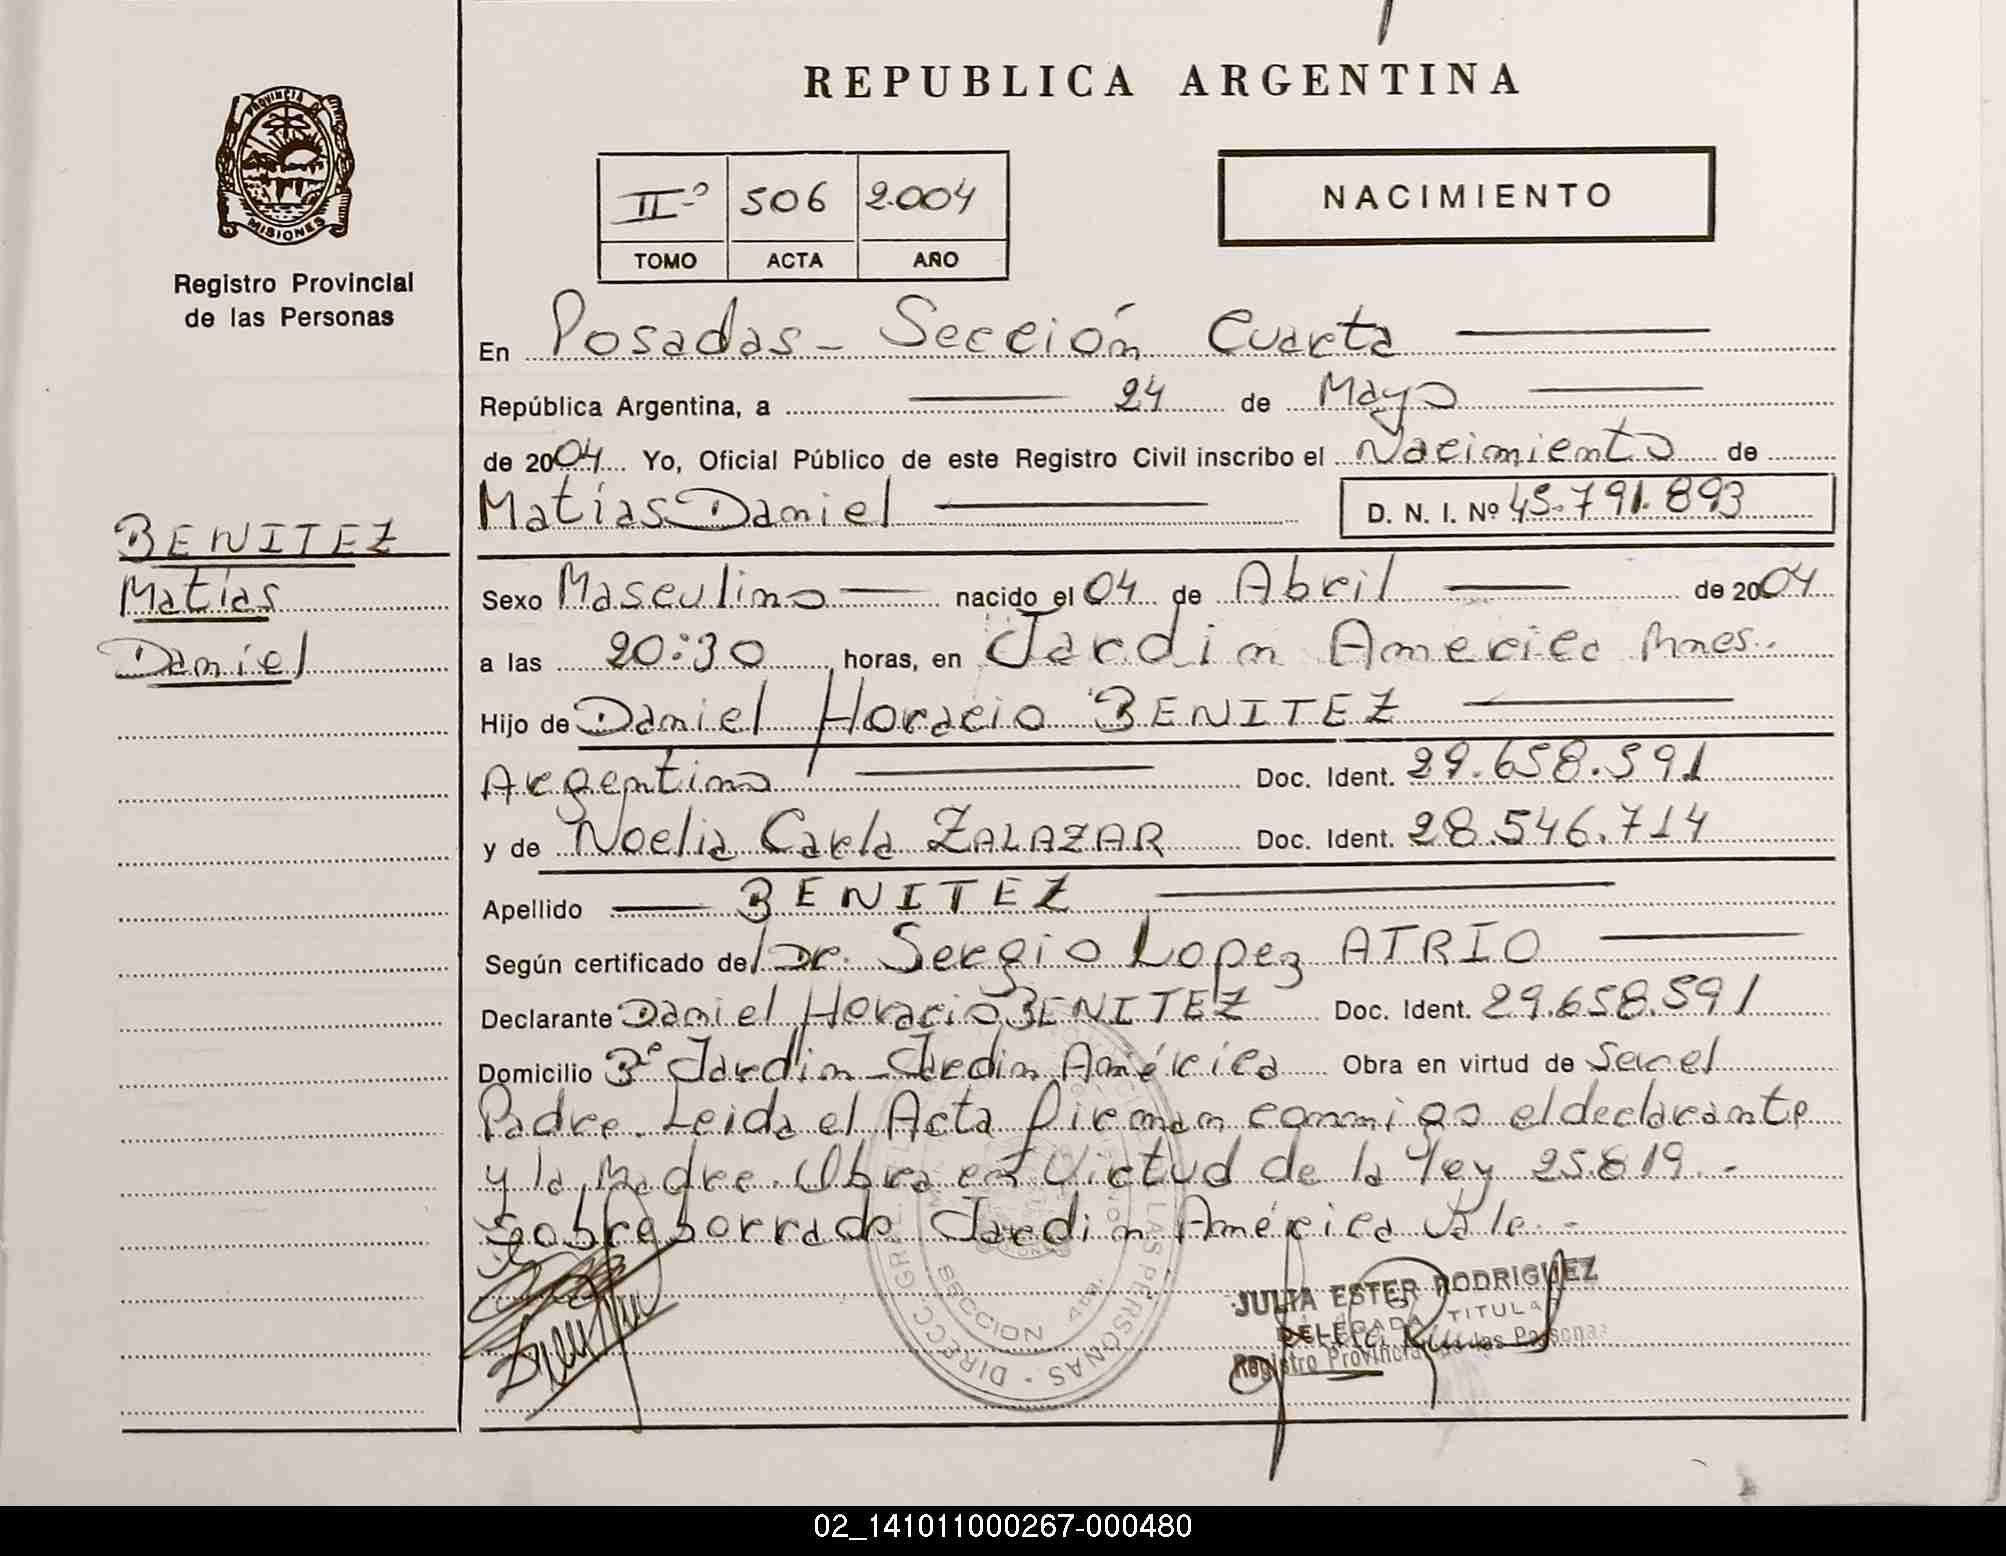 REPUBLICA ARGENTINA
PROVINCIA DE
MISIONES
Registro Provincial
de las Personas
IIº 506 2.004
TOMO ACTA AÑO
NACIMIENTO
En Posadas - Sección Cuarta
República Argentina, a 24 de Mayo
de 2004 Yo, Oficial Público de este Registro Civil inscribo el Nacimiento de
Matías Daniel D. N. I. Nº 45.791.893
BENITEZ
Matías
Daniel
Sexo Masculino nacido el 04 de Abril de 2004
a las 20:30 horas, en Jardin America Mnes.
Hijo de Daniel Horacio BENITEZ
Argentino Doc. Ident. 29.658.591
y de Noelia Carla ZALAZAR Doc. Ident. 28.546.714
Apellido BENITEZ
Según certificado del Dr. Sergio Lopez ATRIO
Declarante Daniel Horacio BENITEZ Doc. Ident. 29.658.591
Domicilio Bº Jardin - Jardin América Obra en virtud de Ser el
Padre. Leida el Acta firman conmigo el declarante
y la Madre. Obra en Virtud de la ley 25.819.-
Sobreborrado Jardin América Vale.-
SECCION 4ta.
LAS PERSONAS
JULIA ESTER RODRIGUEZ
DELEGADA TITULAR
Registro Provincial de las Personas
02_141011000267-000480